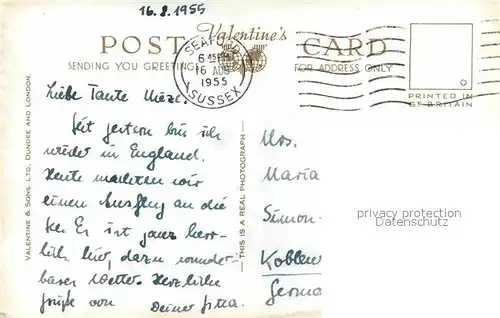 16. 8. 1955
Valentine's
POST CARD
SENDING YOU GREETING
FOR ADDRESS ONLY
SEAFORD
6 45 PM
16 AUG
1955
SUSSEX
PRINTED IN
GT BRITAIN
VALENTINE & SONS, LTD. DUNDEE AND LONDON.
THIS IS A REAL PHOTOGRAPH
Liebe Tante
Seit gestern bin ich
wieder in England.
Heute machten wir
einen Ausflug an die
See. Es ist ganz herr-
lich hier, dazu wunder-
bares Wetter. Herzliche
Grüße von Deiner Jutta.
Mrs.
Maria
Simon.
Koblen
Germa
privacy protection
Datenschutz